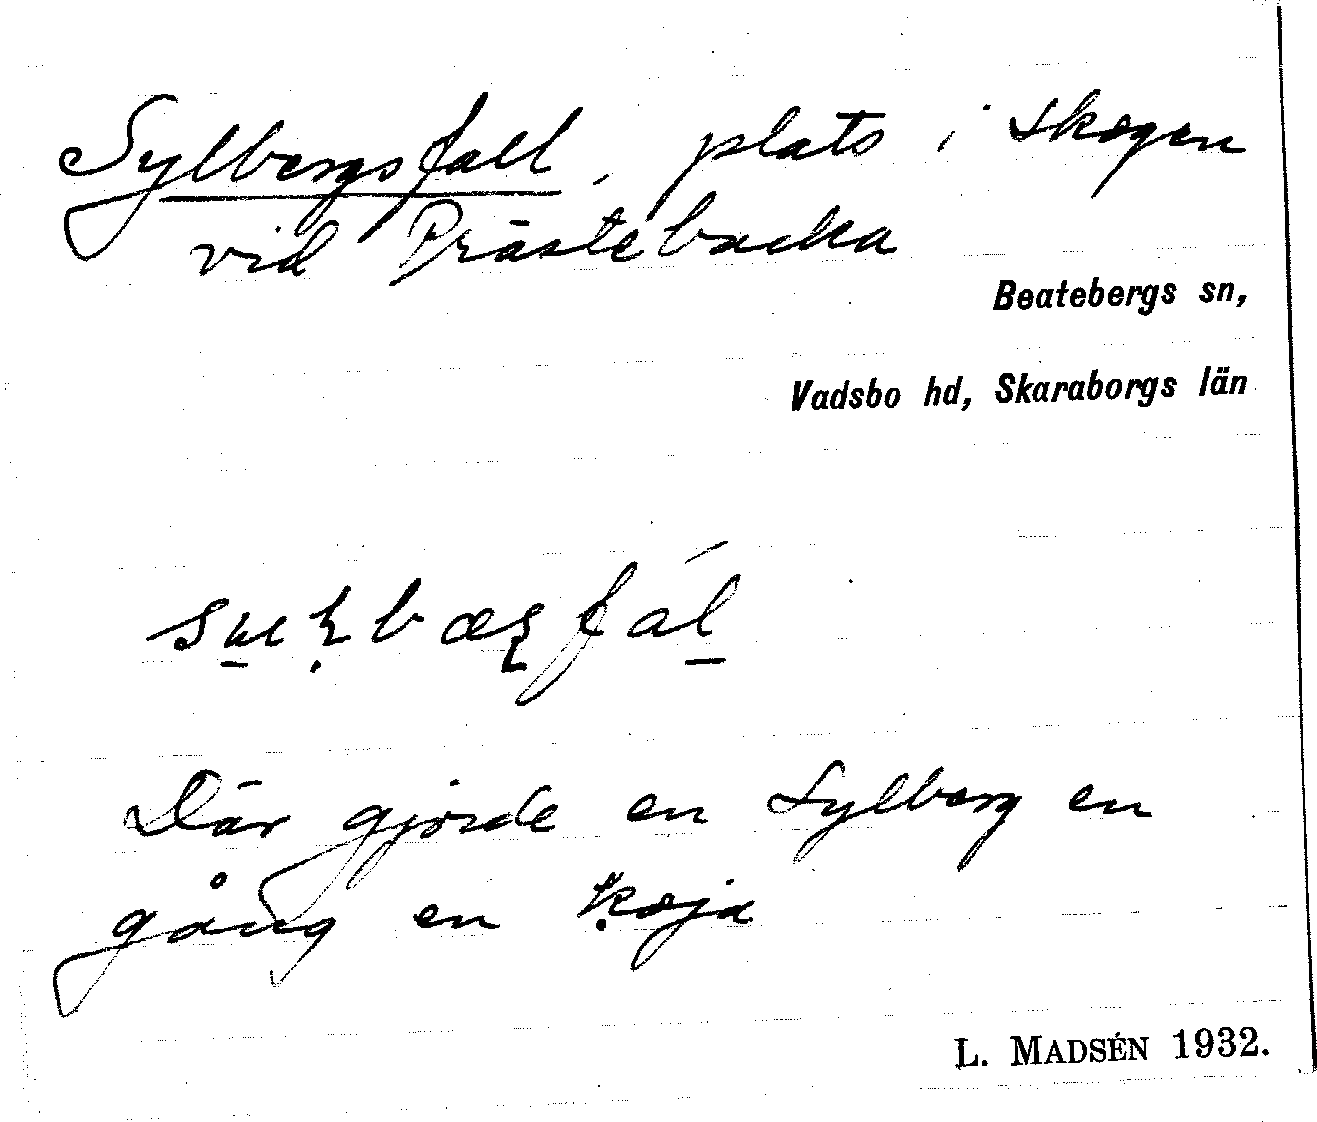 Sylbergsfall, plats i skogen
vid Prästebacka
Beatebergs sn,
Vadsbo hd, Skaraborgs län
Där gjorde en Sylberg en
gång en koja
L. MADSÉN 1932.